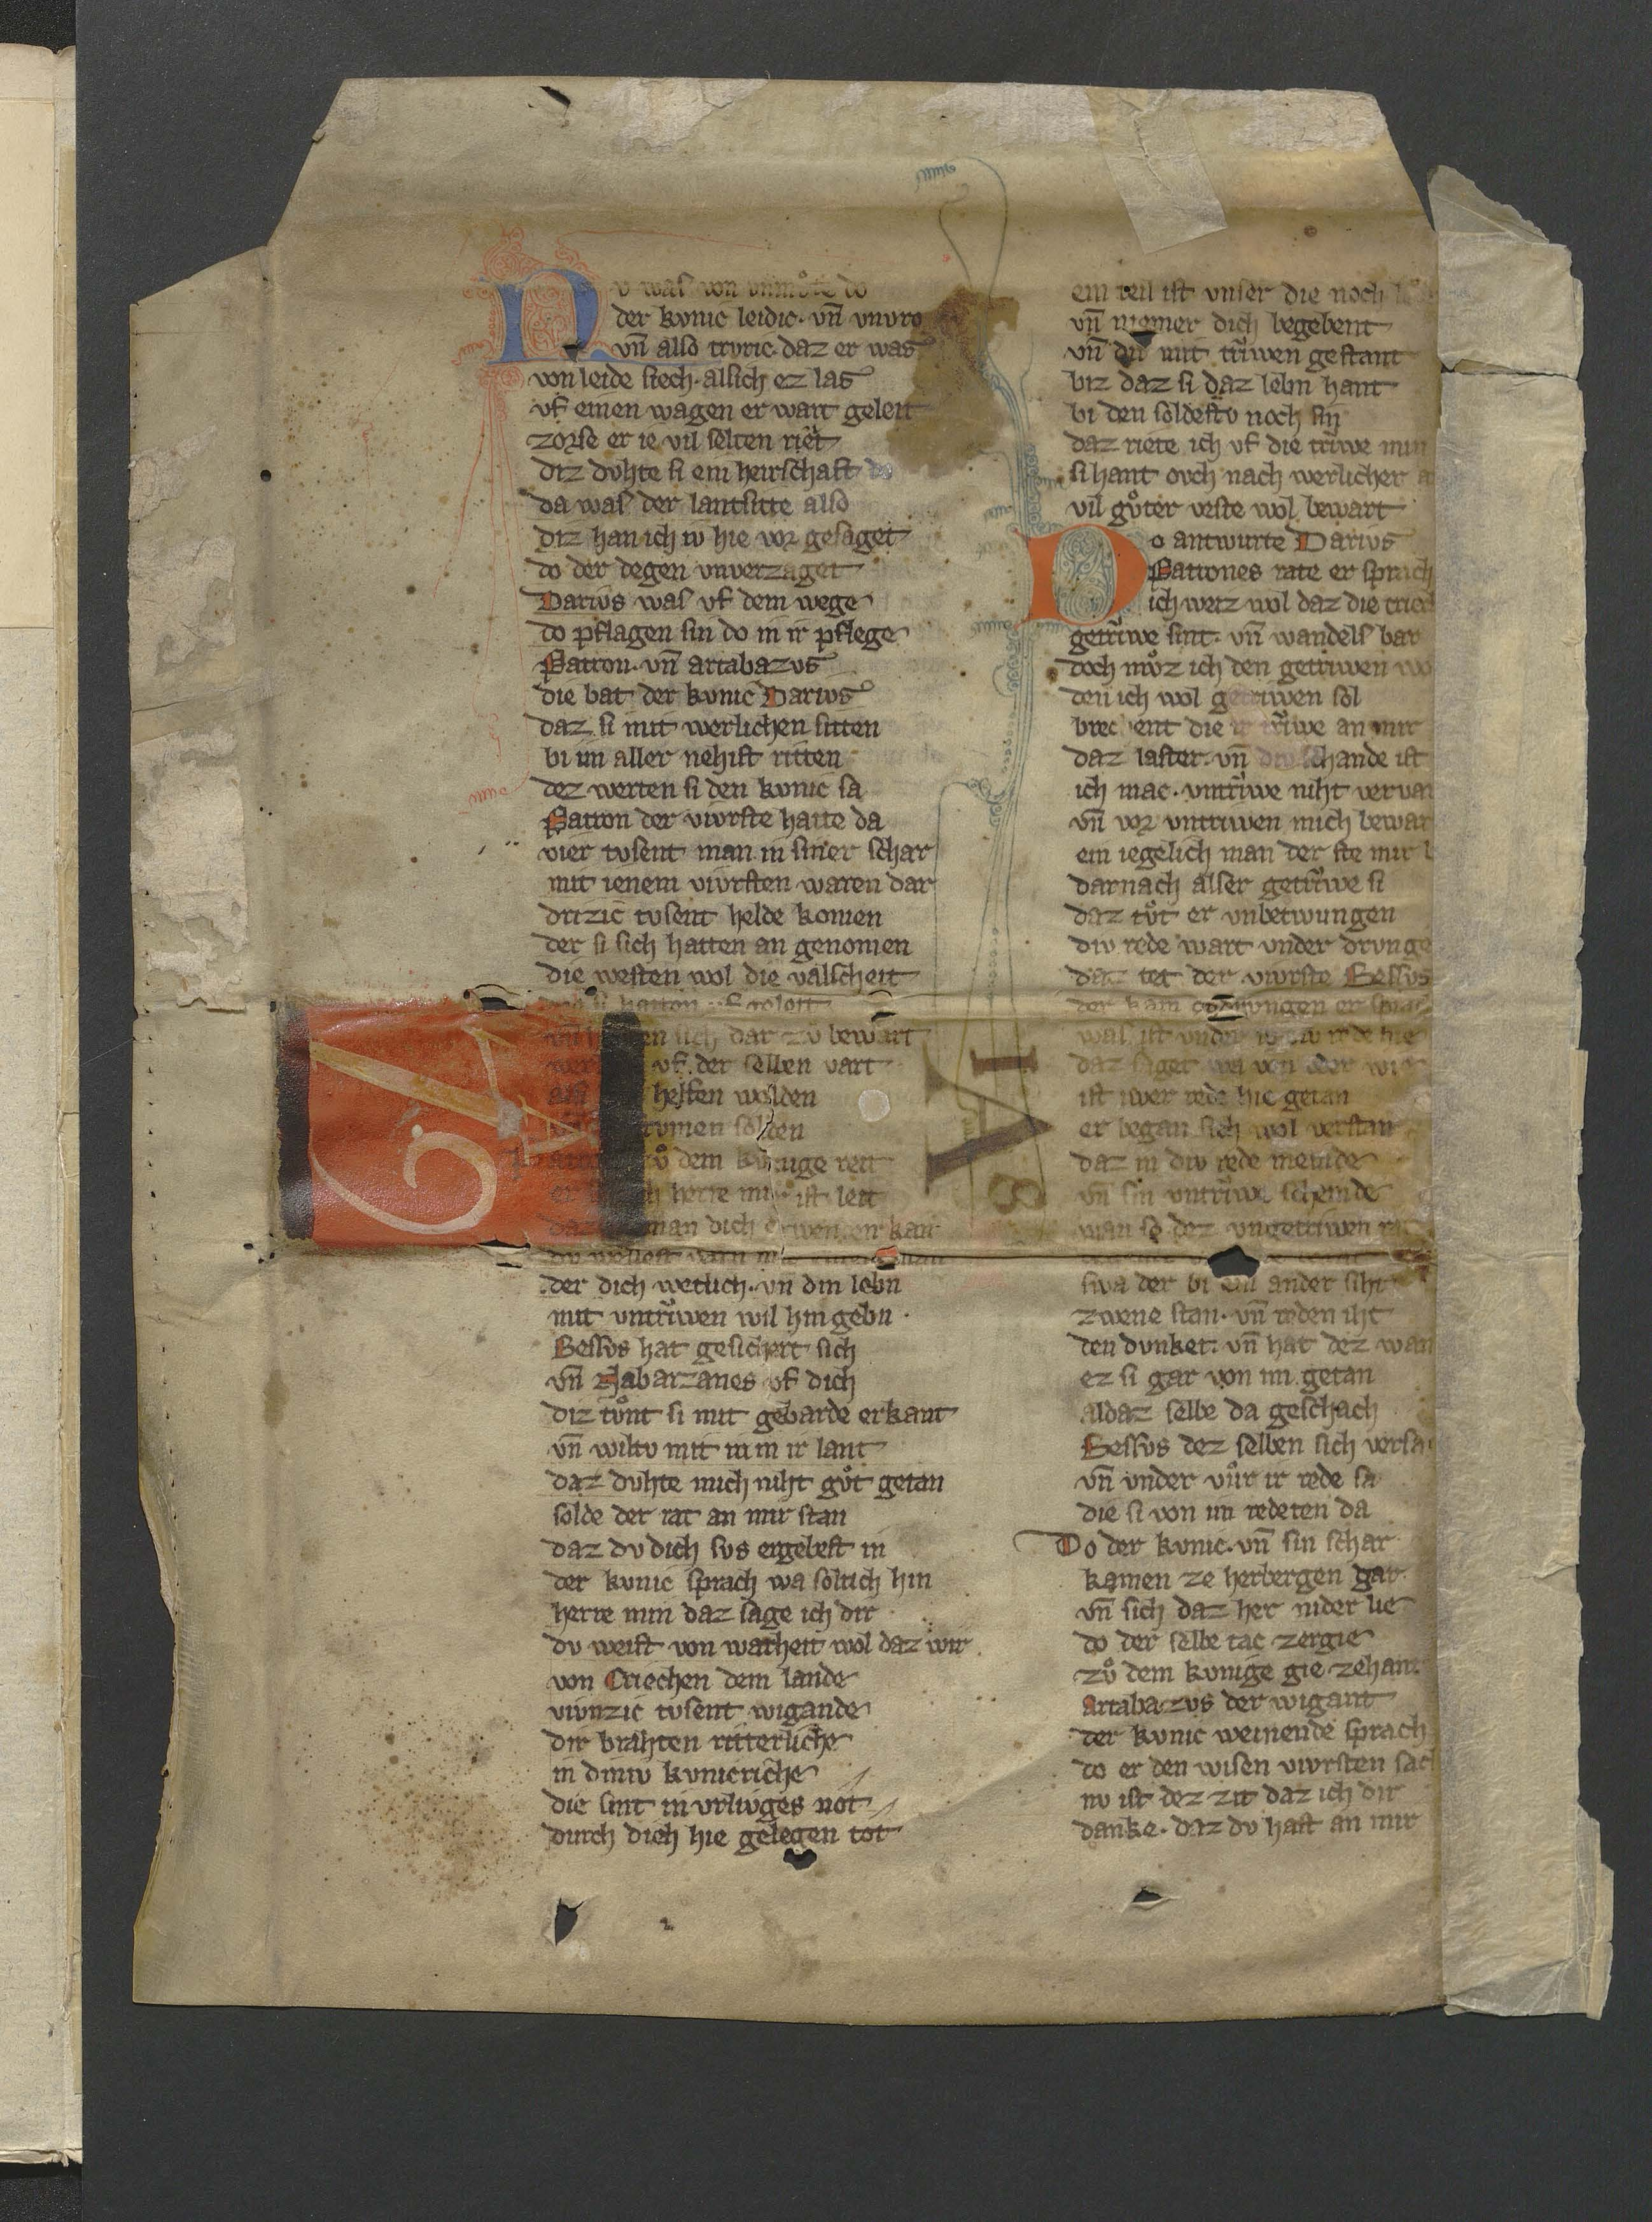 Nv was von vnmuͦte do
der kvnic leidic. vn̄ vnvro
vn̄ also trvric. daz er was
von leide siech. alsich ez las
vf einen wagen er wart geleit
zorse er ie vil selten riet
diz dvhte si ein heirschaft do
da was der lantsitte also
diz han ich iv hie vor gesaget
do der degen vnverzaget
Darivs was vf dem wege
do pflagen sin do in ir pflege
Patron. vn̄ artabazvs
die bat der kvnic Darivs
daz si mit werlichen sitten
bi im aller nehist ritten
dez werten si den kvnic sa
Patron der vivrste hatte da
vier tvsent man in siner schar
mit ienem vivrsten waren dar
drizic tvsent helde komen
der si sich hatten an genomen
die westen wol die valscheit
si hatton vf geleit
sich dar zv bewart
vf der selben vart
helfen wolden
solden
dem kvnige reit
herre mir ist leit
man dich erwenden kan
der dich wetlich. vn̄ din lebn
mit vntrṽwen wil hin gebn.
Bessvs hat gesichert sich
vn̄ Nabarzanes vf dich
diz tvͦnt si mit gebarde erkant
vn̄ wiltv mit in in ir lant
daz dvhte mich niht gvͦt getan
solde der rat an mir stan
daz dv dich svs ergebest in
der kvnic sprach wa soltich hin
herre min daz sage ich dir
dv weist von warheit wol daz wir
von Criechen dem lande
vivnzic tvsent wigande
dir brahten ritterliche
in diniv kvnicriche
die sint in vrlivges not
durch dich hie gelegen tot
ein teil ist vnser die noch
vn̄ niemer dich begebent
vn̄ dir mit trṽwen gestant
biz daz si daz lebn hant
bi den soldestv noch sin
daz riete ich vf die trṽwe min
si hant ovch nach werlicher
vil gvͦter veste wol bewart
Do antwurte Darivs
Patrones rate er sprach
ich weiz wol daz die criech
getrṽwe sint. vn̄ wandels bar
doch mvͦz ich den getriwen
den ich wol getriwen sol
brechent die ir trṽwe an mir
daz laster. vn̄ div schande ist
ich mac. vntrṽwe niht
vn̄ vor vntruwen mich bewar
ein iegelich man der ste mir
darnach alser getrṽwe si
daz tvͦt er vnbetwungen
div rede wart vnder drvnge
daz tet der vivrste Bessvs
der kam gedrvngen er sprac
was ist vnder iv div rede hie
daz saget wa von oder wie
ist iwer rede hie getan
er began sich wol verstan
daz in div rede meinde
vn̄ sin vntrṽwe scheinde
man se dez vngetriwen
swa der bi ein ander siht
zwene stan. vn̄ reden iht
den dvnket. vn̄ hat dez wan
ez si gar von im getan
aldaz selbe da geschach
Bessvs dez selben sich versa
vn̄ vnder vvͦr ir rede sa
die si von im redeten da
Do der kvnic. vn̄ sin schar
kamen ze herbergen gar.
vn̄ sich daz her nider lie
do der selbe tac zergie
zvͦ dem kvnige gie zehant
Artabazvs der wigant
der kvnic weinende sprach
do er den wisen vivrsten sach
nv ist dez zit daz ich dir
danke. daz dv hast an mir